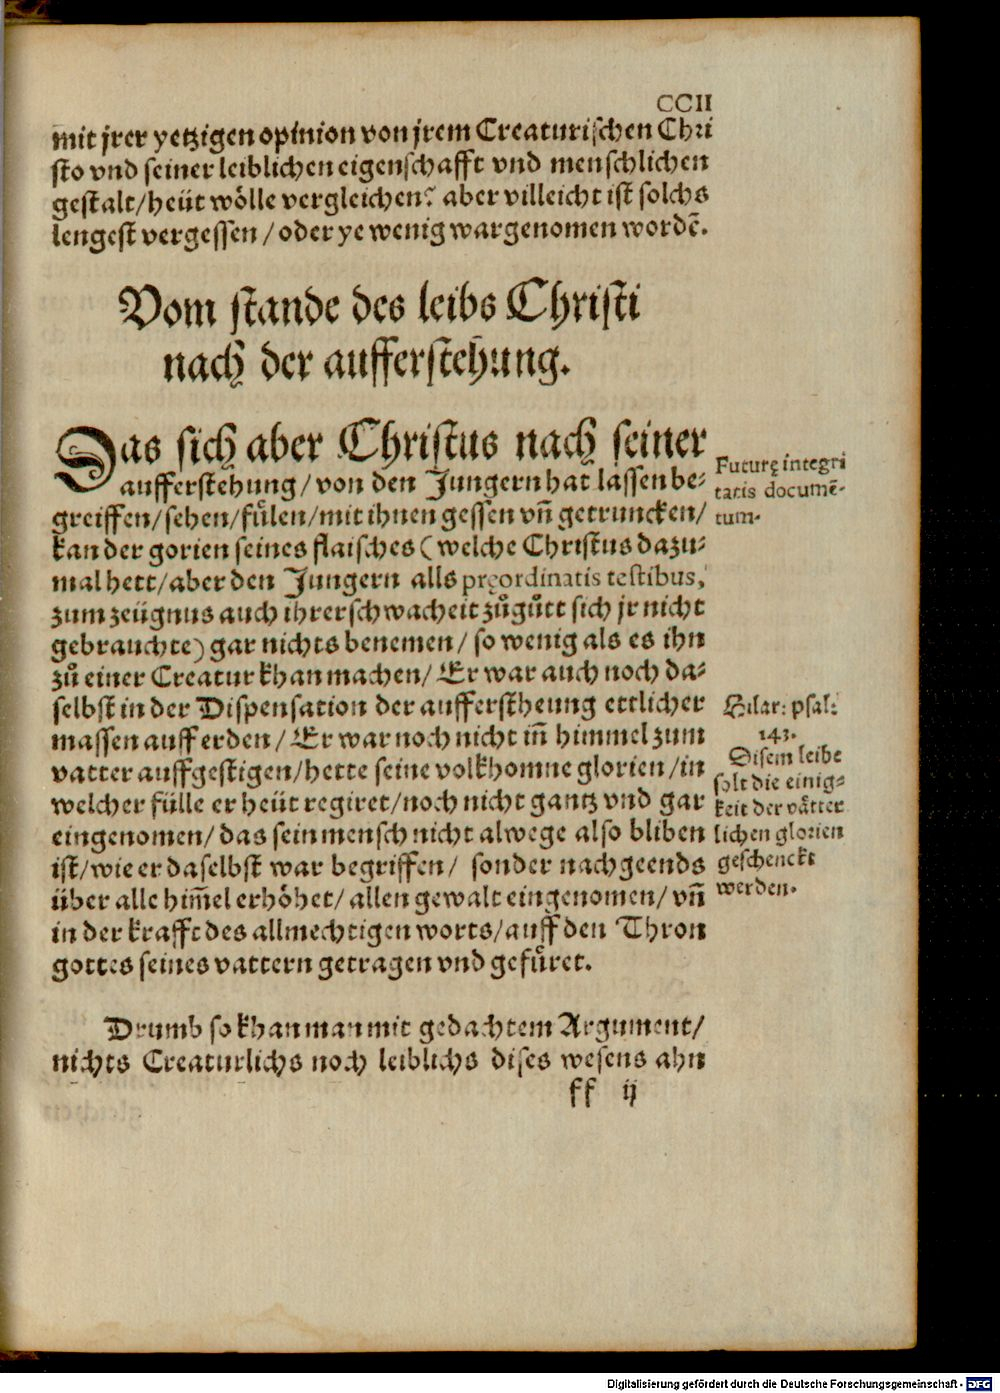 CCII
mit jrer yetzigen opinion von jrem Creaturischen Chri
sto vnd seiner leiblichen eigenschafft vnd menschlichen
gestalt/heüt wölle vergleichen? aber villeicht ist solchs
lengest vergessen/oder ye wenig wargenomen wordē.
Vom stande des leibs Christi
nach der aufferstehung.
Das sich aber Christus nach seiner
aufferstehung/von den Jungern hat lassen be-
greiffen/sehen/fůlen/mit ihnen gessen vñ getruncken/
kan der gorien seines flaisches (welche Christus dazu-
mal hett/aber den Jungern alls pręordinatis testibus,
zum zeügnus auch ihrer schwacheit zůgůtt sich jr nicht
gebrauchte) gar nichts benemen/ so wenig als es ihn
zů einer Creatur khan machen/ Er war auch noch da-
selbst in der Dispensation der aufferstheung ettlicher
massen auff erden/ Er war noch nicht iñ himmel zum
vatter auffgestigen/hette seine volkhomne glorien/in
welcher fülle er heüt regiret/noch nicht gantz vnd gar
eingenomen/das sein mensch nicht alwege also bliben
ist/wie er daselbst war begriffen/ sonder nachgeends
über alle him̄el erhöhet/allen gewalt eingenomen/ vñ
in der krafft des allmechtigen worts/auff den Thron
gottes seines vattern getragen vnd gefůret.
Drumb so khan man mit gedachtem Argument/
nichts Creaturlichs noch leiblichs dises wesens ahn
ff ij
Futurę integri
tatis documē-
tum.
Hilar: psal:
143.
Disem leibe
solt die einig-
keit der våtter
lichen glorien
geschenckt
werden.
Digitalisierung gefördert durch die Deutsche Forschungsgemeinschaft - DFG